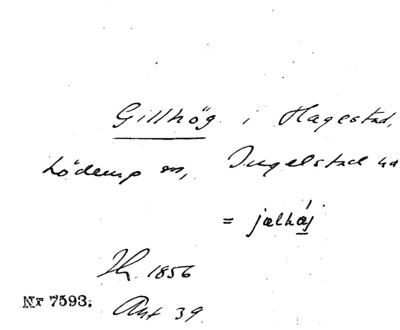 Gillhög i Hagestad,
Löderup sn, Ingelstad hd
= jælhæj
1856
Nr 7593. Ant 39